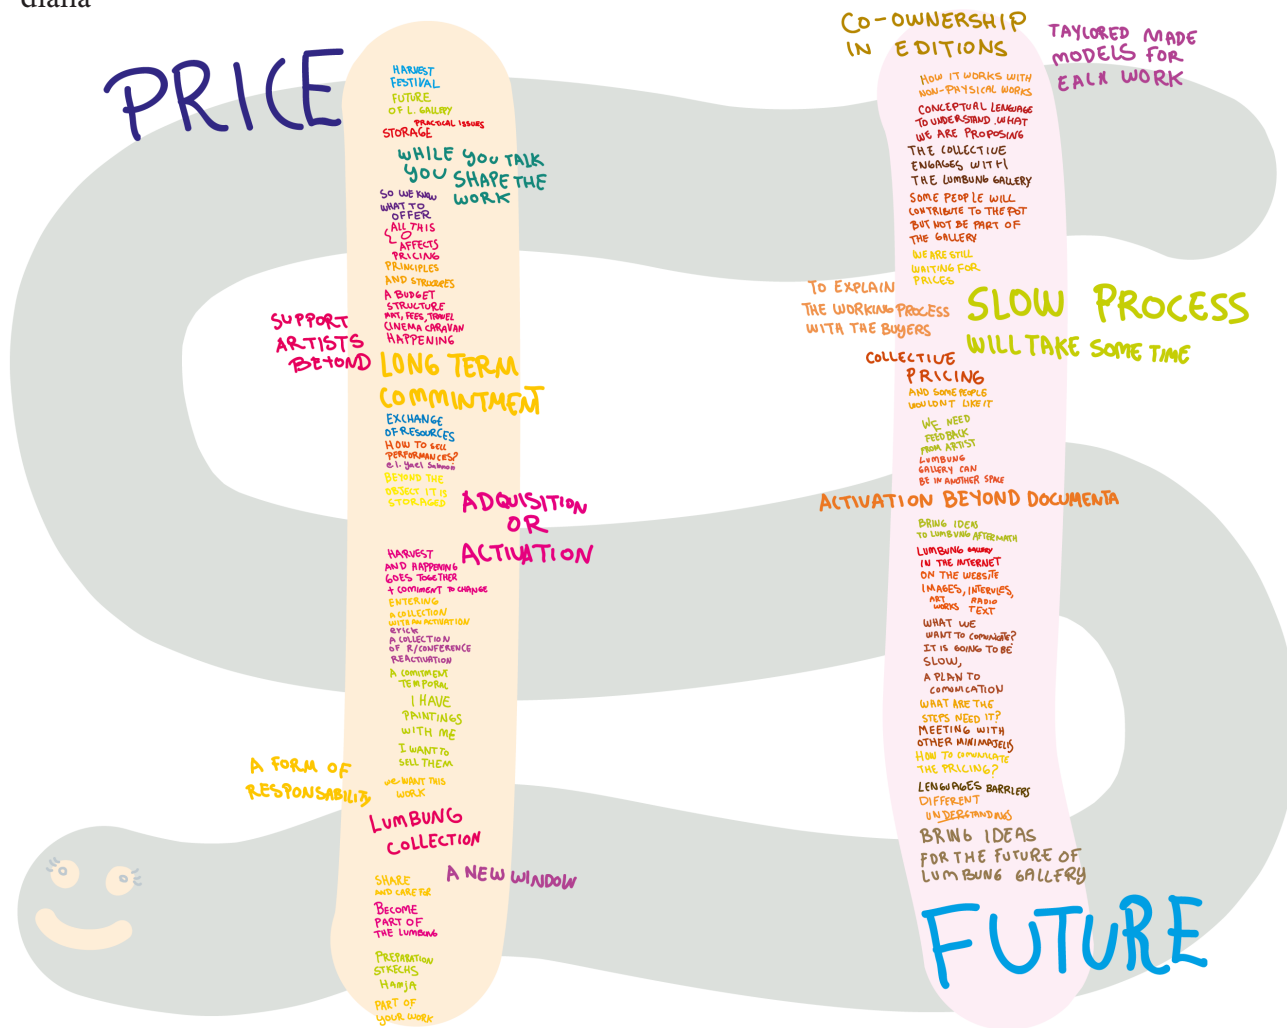 diana
PRICE
HARVEST
FESTIVAL
FUTURE
OF L. GALLERY
PRACTICAL ISSUES
STORAGE
WHILE YOU TALK
YOU SHAPE THE
WORK
SO WE KNOW
WHAT TO
OFFER
ALL THIS
AFFECTS
PRICING
PRINCIPLES
AND
A BUDGET
STRUCTURE
FEES, TRAVEL
CINEMA CARAVAN
HAPPENING
SUPPORT
ARTISTS
BEYOND
LONG TERM
COMMINTMENT
EXCHANGE
OF RESOURCES
HOW TO SELL
PERFORMANCES?
BEYOND THE
OBJECT IT IS
STORAGED
ADQUISITION
OR
ACTIVATION
HARVEST
AND HAPPENING
GOES TOGETHER
+ COMIMENT TO CHANGE
ENTERING
A COLLECTION
WITH AN ACTIVATION
ERICK
A COLLECTION
OF R/CONFERENCE
REACTIVATION
A COMITMENT
TEMPORAL
I HAVE
PAINTINGS
WITH ME
I WANT TO
SELL THEM
A FORM OF
RESPONSABILITY
WE WANT THIS
WORK
LUMBUNG
COLLECTION
A NEW WINDOW
SHARE
AND CARE FOR
BECOME
PART OF
THE LUMBUNG
PREPARATION
STKECHS
HAMJA
PART OF
YOUR WORK
CO-OWNERSHIP
IN EDITIONS
TAYLORED MADE
MODELS FOR
EACH WORK
HOW IT WORKS WITH
NON-PHYSICAL WORKS
CONCEPTUAL LENGUAGE
TO UNDERSTAND WHAT
WE ARE PROPOSING
THE COLLECTIVE
ENGAGES WITH
THE LUMBUNG GALLERY
SOME PEOPLE WILL
CONTRIBUTE TO THE POT
BUT NOT BE PART OF
THE GALLERY
WE ARE STILL
WAITING FOR
PRICES
TO EXPLAIN
THE WORKING PROCESS
WITH THE BUYERS
SLOW PROCESS
WILL TAKE SOME TIME
COLLECTIVE
PRICING
AND SOME PEOPLE
WOULDNT LIKE IT
WE NEED
FEEDBACK
FROM ARTIST
LUMBUNG
GALLERY CAN
BE IN ANOTHER SPACE
ACTIVATION BEYOND DOCUMENTA
BRING IDEAS
TO LUMBUNG AFTERMATH
LUMBUNG GALLERY
IN THE INTERNET
ON THE WEBSITE
IMAGES, INTERVIES,
ART RADIO
WORKS TEXT
WHAT WE
WANT TO COMUNICATE?
IT IS GOING TO BE
SLOW,
A PLAN TO
COMUNICATION
WHAT ARE THE
STEPS NEED IT?
MEETING WITH
OTHER MINIMAJELIS
HOW TO COMUNICATE
THE PRICING?
LENGUAGES BARRIERS
DIFFERENT
UNDERSTANDINGS
BRING IDEAS
FOR THE FUTURE OF
LUMBUNG GALLERY
FUTURE